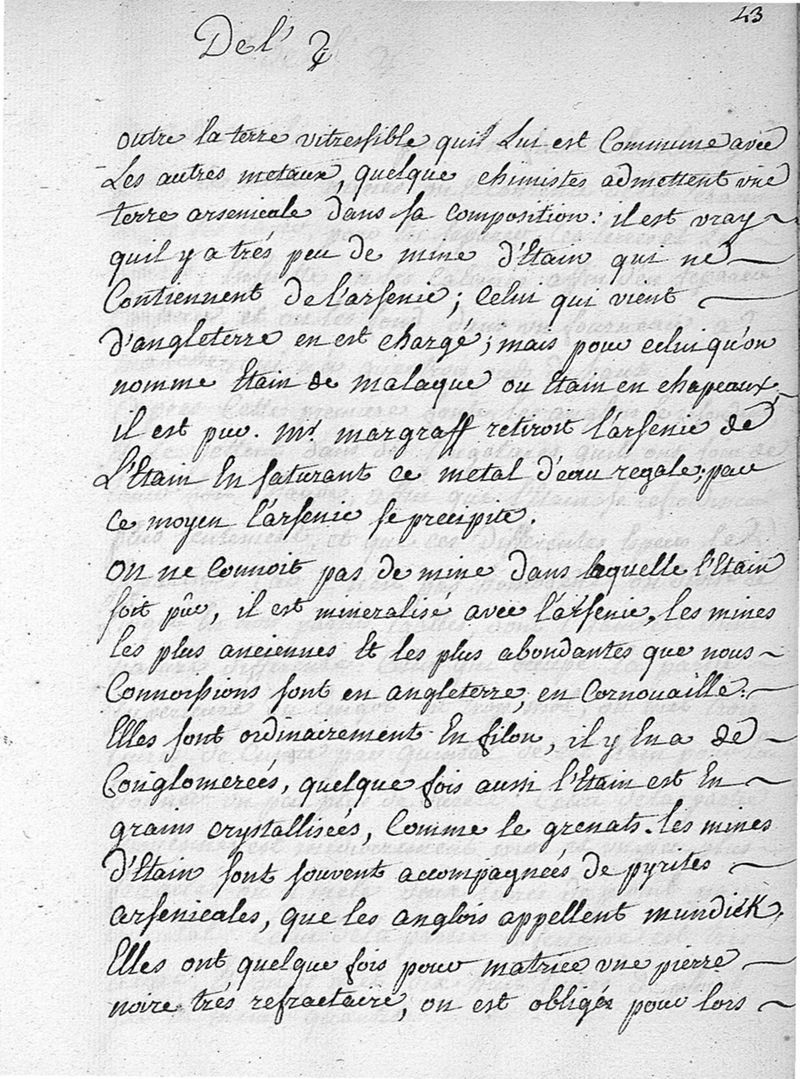 43
De l' ♃
outre la terre vitressible quil Lui est Commune avec
Les autres metaux, quelque chimistes admettent vne
terre arsenicale dans sa composition: il est vray
quil y a trés peu de mine d'Etain qui ne
Contiennent de l'arsenic; Celui qui vient
d'angleterre en est chargé; mais pour celui qu'on
nomme Etain de malaque ou Etain en chapeaux,
il est pur. Mr. margraff retiroit l'arsenic de
L'Etain En saturant ce metal d'eau regale; par
ce moyen l'arsenic se precipite.
On ne Connoit pas de mine dans laquelle l'Etain
soit pûr, il est mineralisé avec l'arsenic, les mines
les plus anciennes Et les plus abondantes que nous
Connoissions sont en angleterre en Cornouaille.
Elles sont ordinairement En filon, il y En a de
Conglomerées, quelque fois aussi l'Etain est En
grains crystallisées, Comme le grenats. les mines
d'Etain sont souvent accompagnées de pyrites
arsenicales, que les anglois appellent mundick,
Elles ont quelque fois pour matrice vne pierre
noire trés refractaire, on est obligés pour lors